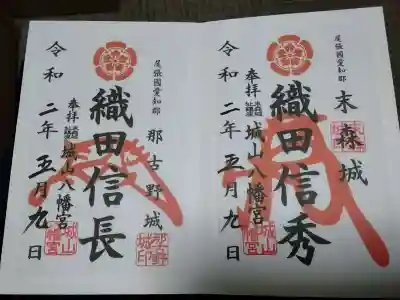 尾張國愛知郡
末森城
織田信秀
奉拝
城山八幡宮
令和二年五月九日
城山八幡宮
尾張國愛知郡
那古野城
織田信長
奉拝
城山八幡宮
令和二年五月九日
那古野城印
城山八幡宮